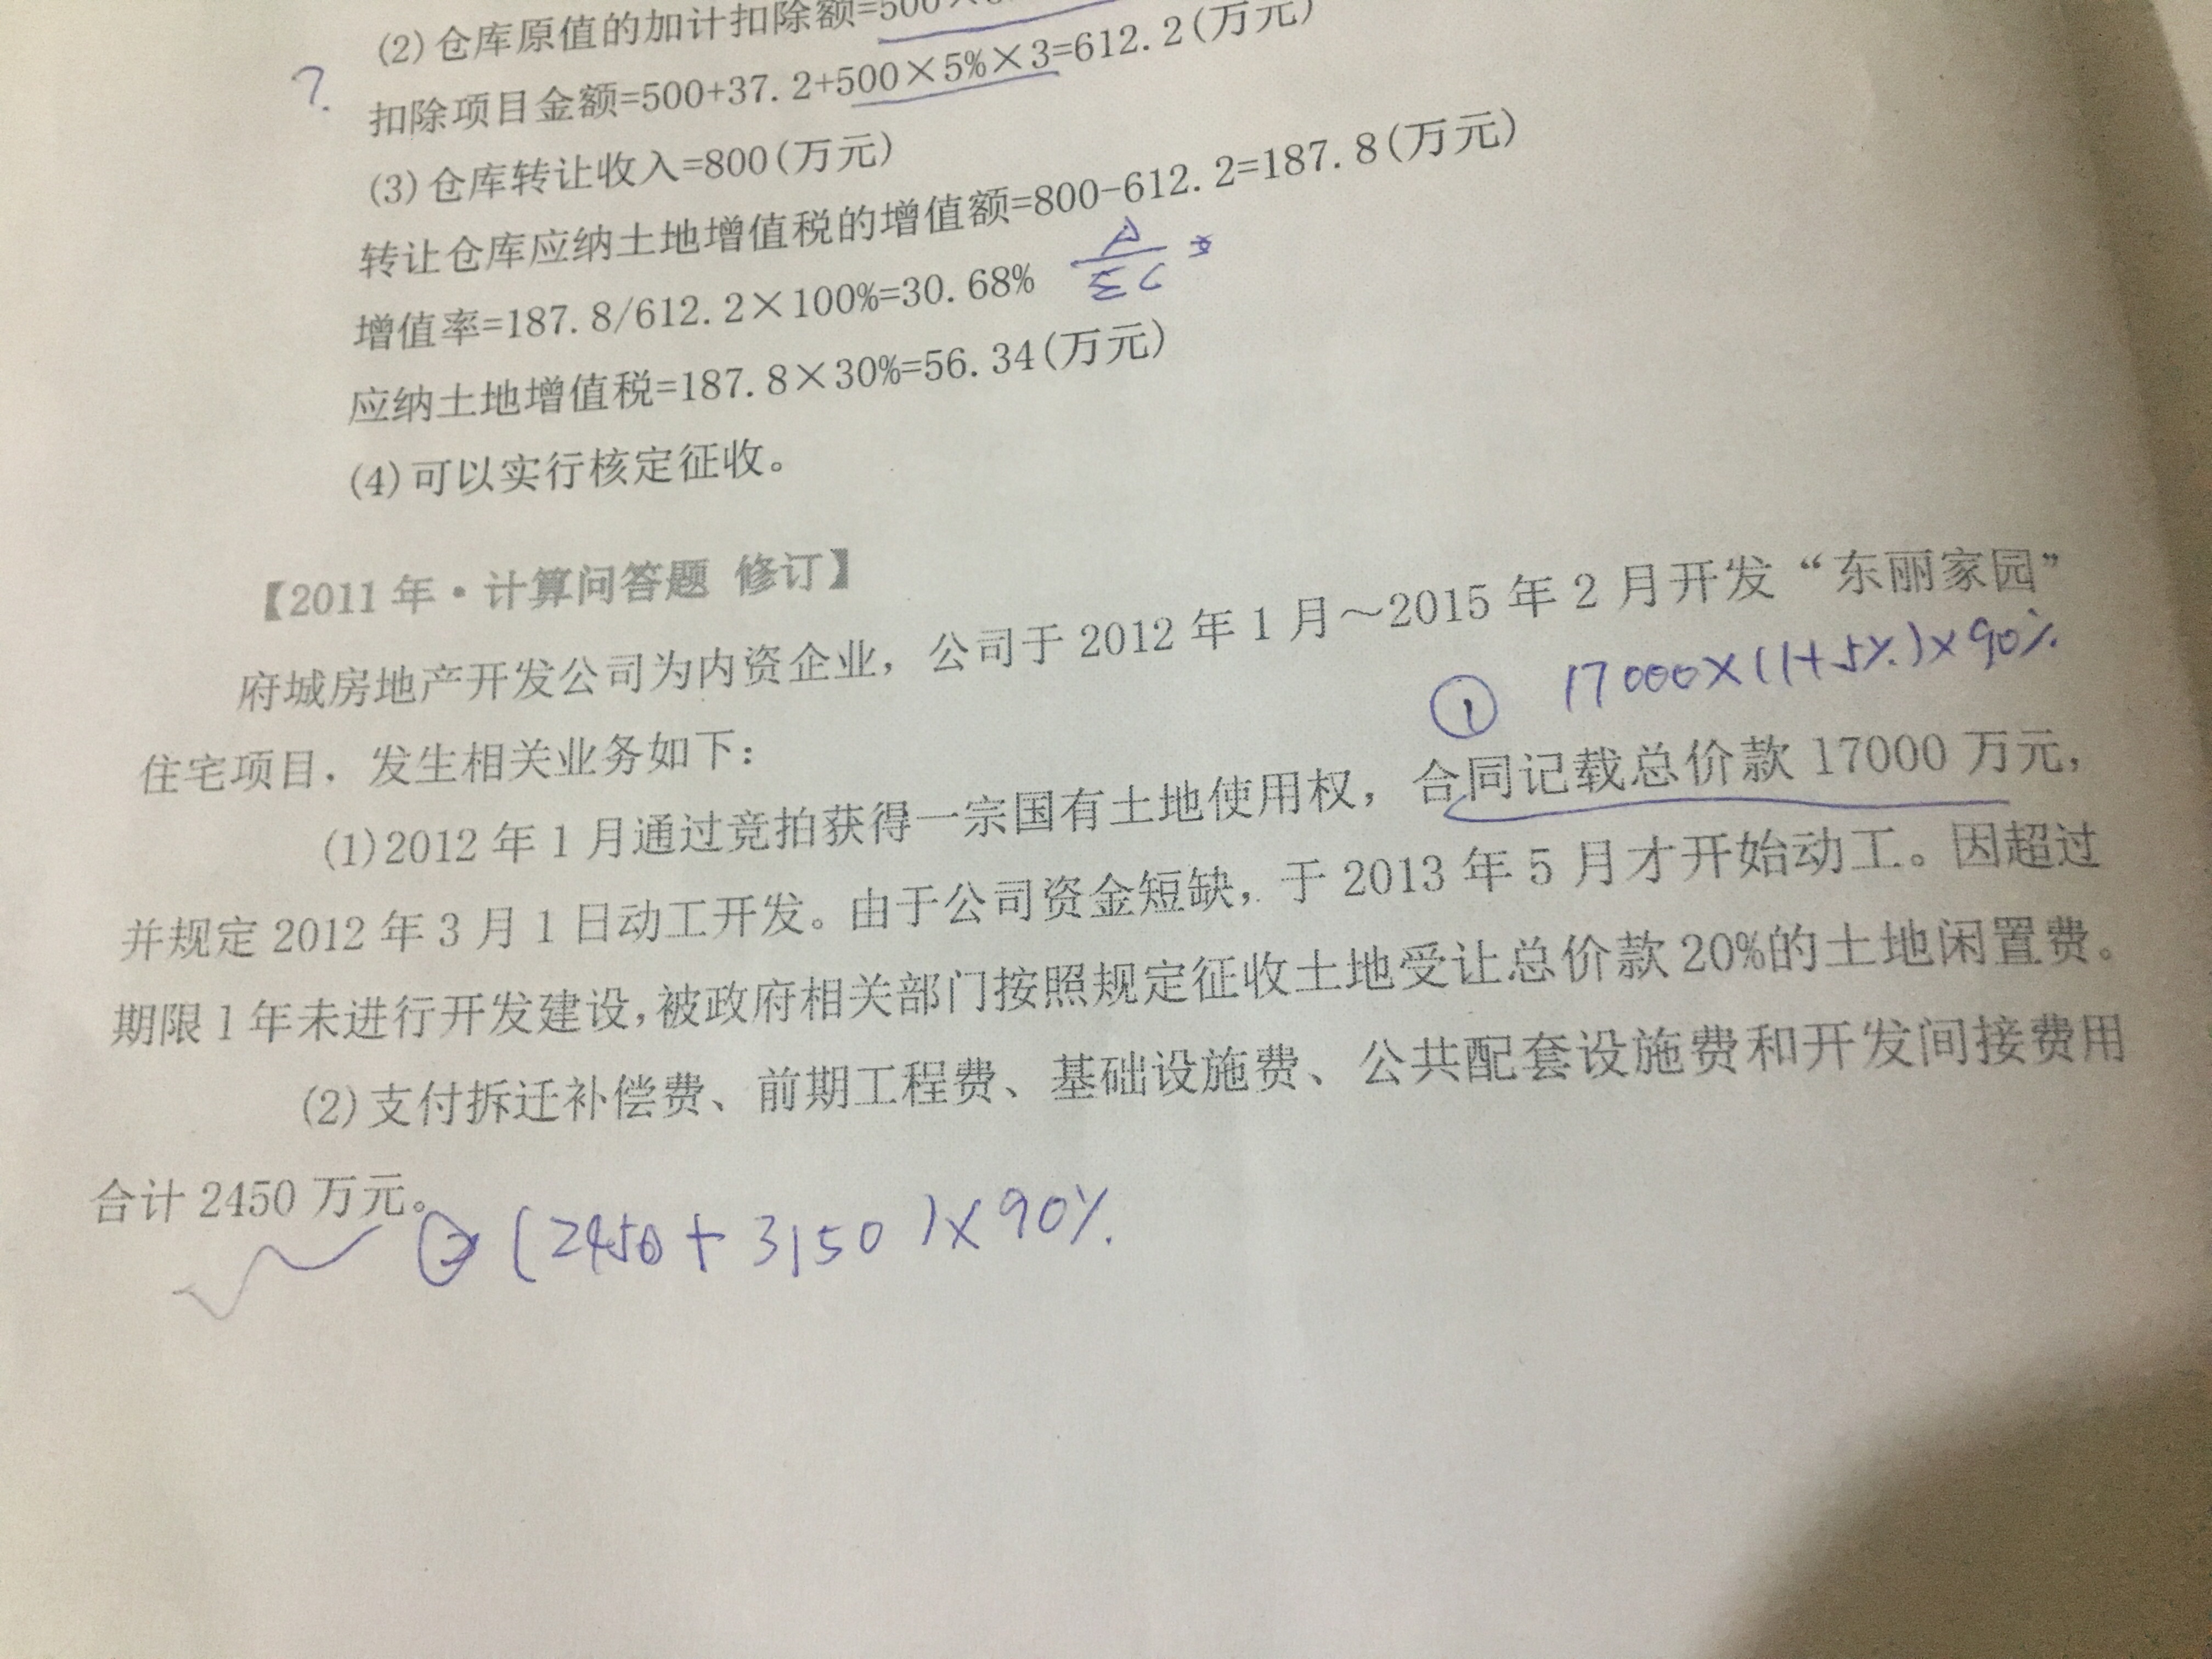 (2)仓库原值的加计扣除额=500×
? 扣除项目金额=500+37.2+500×5%×3=612.2(万元)
(3)仓库转让收入=800(万元)
转让仓库应纳土地增值税的增值额=800-612.2=187.8(万元)
增值率=187.8/612.2×100%=30.68%
应纳土地增值税=187.8×30%=56.34(万元)
(4)可以实行核定征收。
【2011年·计算问答题 修订】
府城房地产开发公司为内资企业，公司于2012年1月～2015年2月开发“东丽家园”
① 17000×(1+5%)×90%
住宅项目．发生相关业务如下：
(1)2012年1月通过竞拍获得一宗国有土地使用权，合同记载总价款17000万元，
并规定2012年3月1日动工开发。由于公司资金短缺，于2013年5月才开始动工。因超过
期限1年未进行开发建设，被政府相关部门按照规定征收土地受让总价款20%的土地闲置费。
(2)支付拆迁补偿费、前期工程费、基础设施费、公共配套设施费和开发间接费用
合计2450万元。
② (2450+3150)×90%